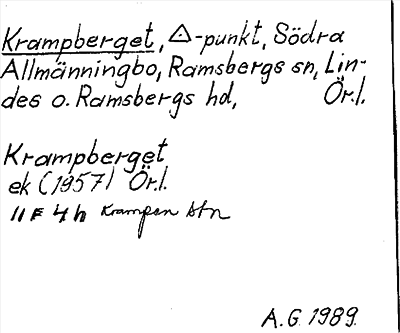 Krampberget, △-punkt, Södra
Allmänningbo, Ramsbergs sn, Lin-
des o. Ramsbergs hd, Ör.l.
Krampberget
ek (1957) Ör.l.
11 F 4 h Krampen stn
A.G. 1989.